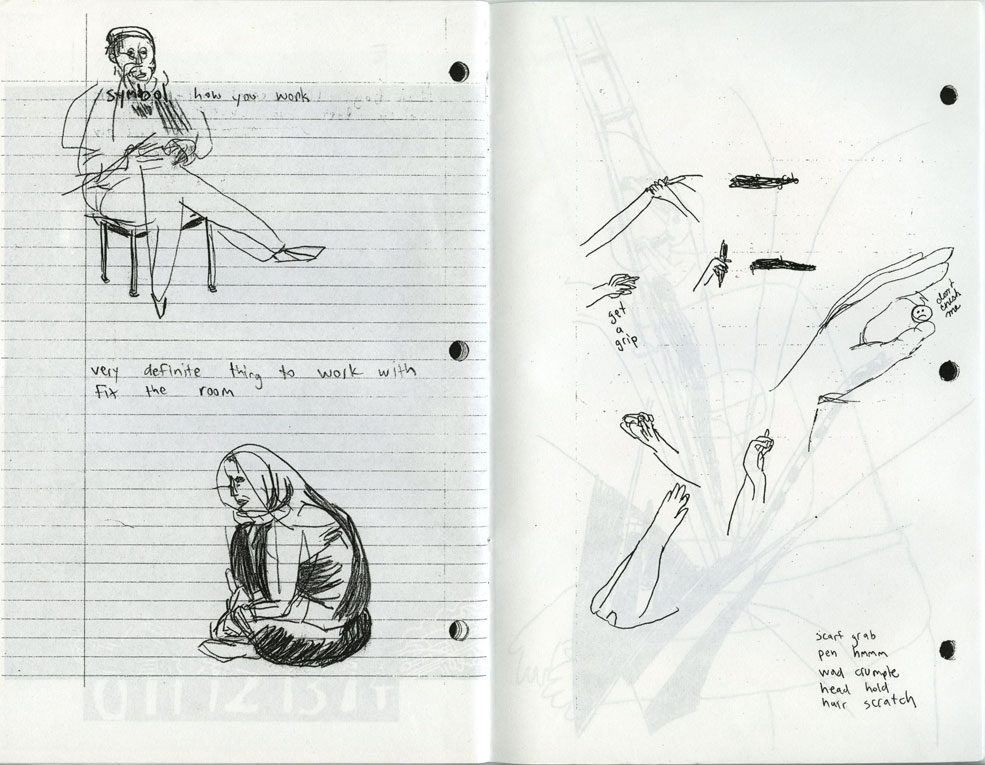 symbol - how you work
very definite thing to work with
fix the room
get
a
grip
don't
crush
me
scarf grab
pen hmmm
wad crumple
head hold
hair scratch